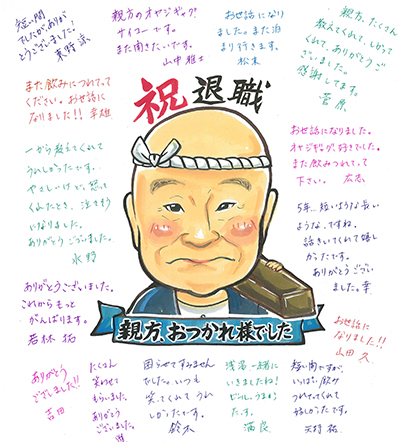 短い間
でしたがありが
とうございました!
東野 涼
親方のオヤジギャグ
サイコーです。
また聞きたいです。
山中雅士
お世話になり
ました。また泊
まり行きます。
松末
親方、たくさん
教えてくれて、しかって
くれて、ありがとうご
ざいました。
感謝してます。
菅原
祝 退職
また飲みにつれてって
ください。お世話に
なりました!! 幸雄
お世話になりました。
オヤジギャグ好きでした。
また飲みつれてって
下さい。 広志
一から教えてくれて
うれしかったです。
やさしいけど、怒って
くれたとき、泣きそう
になりました。
ありがとうございました。
水野
5年…短いような長い
ような…ですね。
話きいてくれて嬉し
かったです。
ありがとうござい
ました。幸
ありがとうございました。
これからもっと
がんばります。
若林 拓
お世話に
なりました!!
山田 久
親方、おつかれ様でした
ありがとう
ございました!!
吉田
たくさん
笑わせて
もらいました。
ありがとう
ございました。
困らせてすみません
でした。いつも
笑ってくれてうれ
しかったです。
鈴木
浅草一緒に
いきましたね!
ビール、うまかっ
たす。
満良
短い間ですが、
いっぱい飲み
つれてってくれて
嬉しかったです。